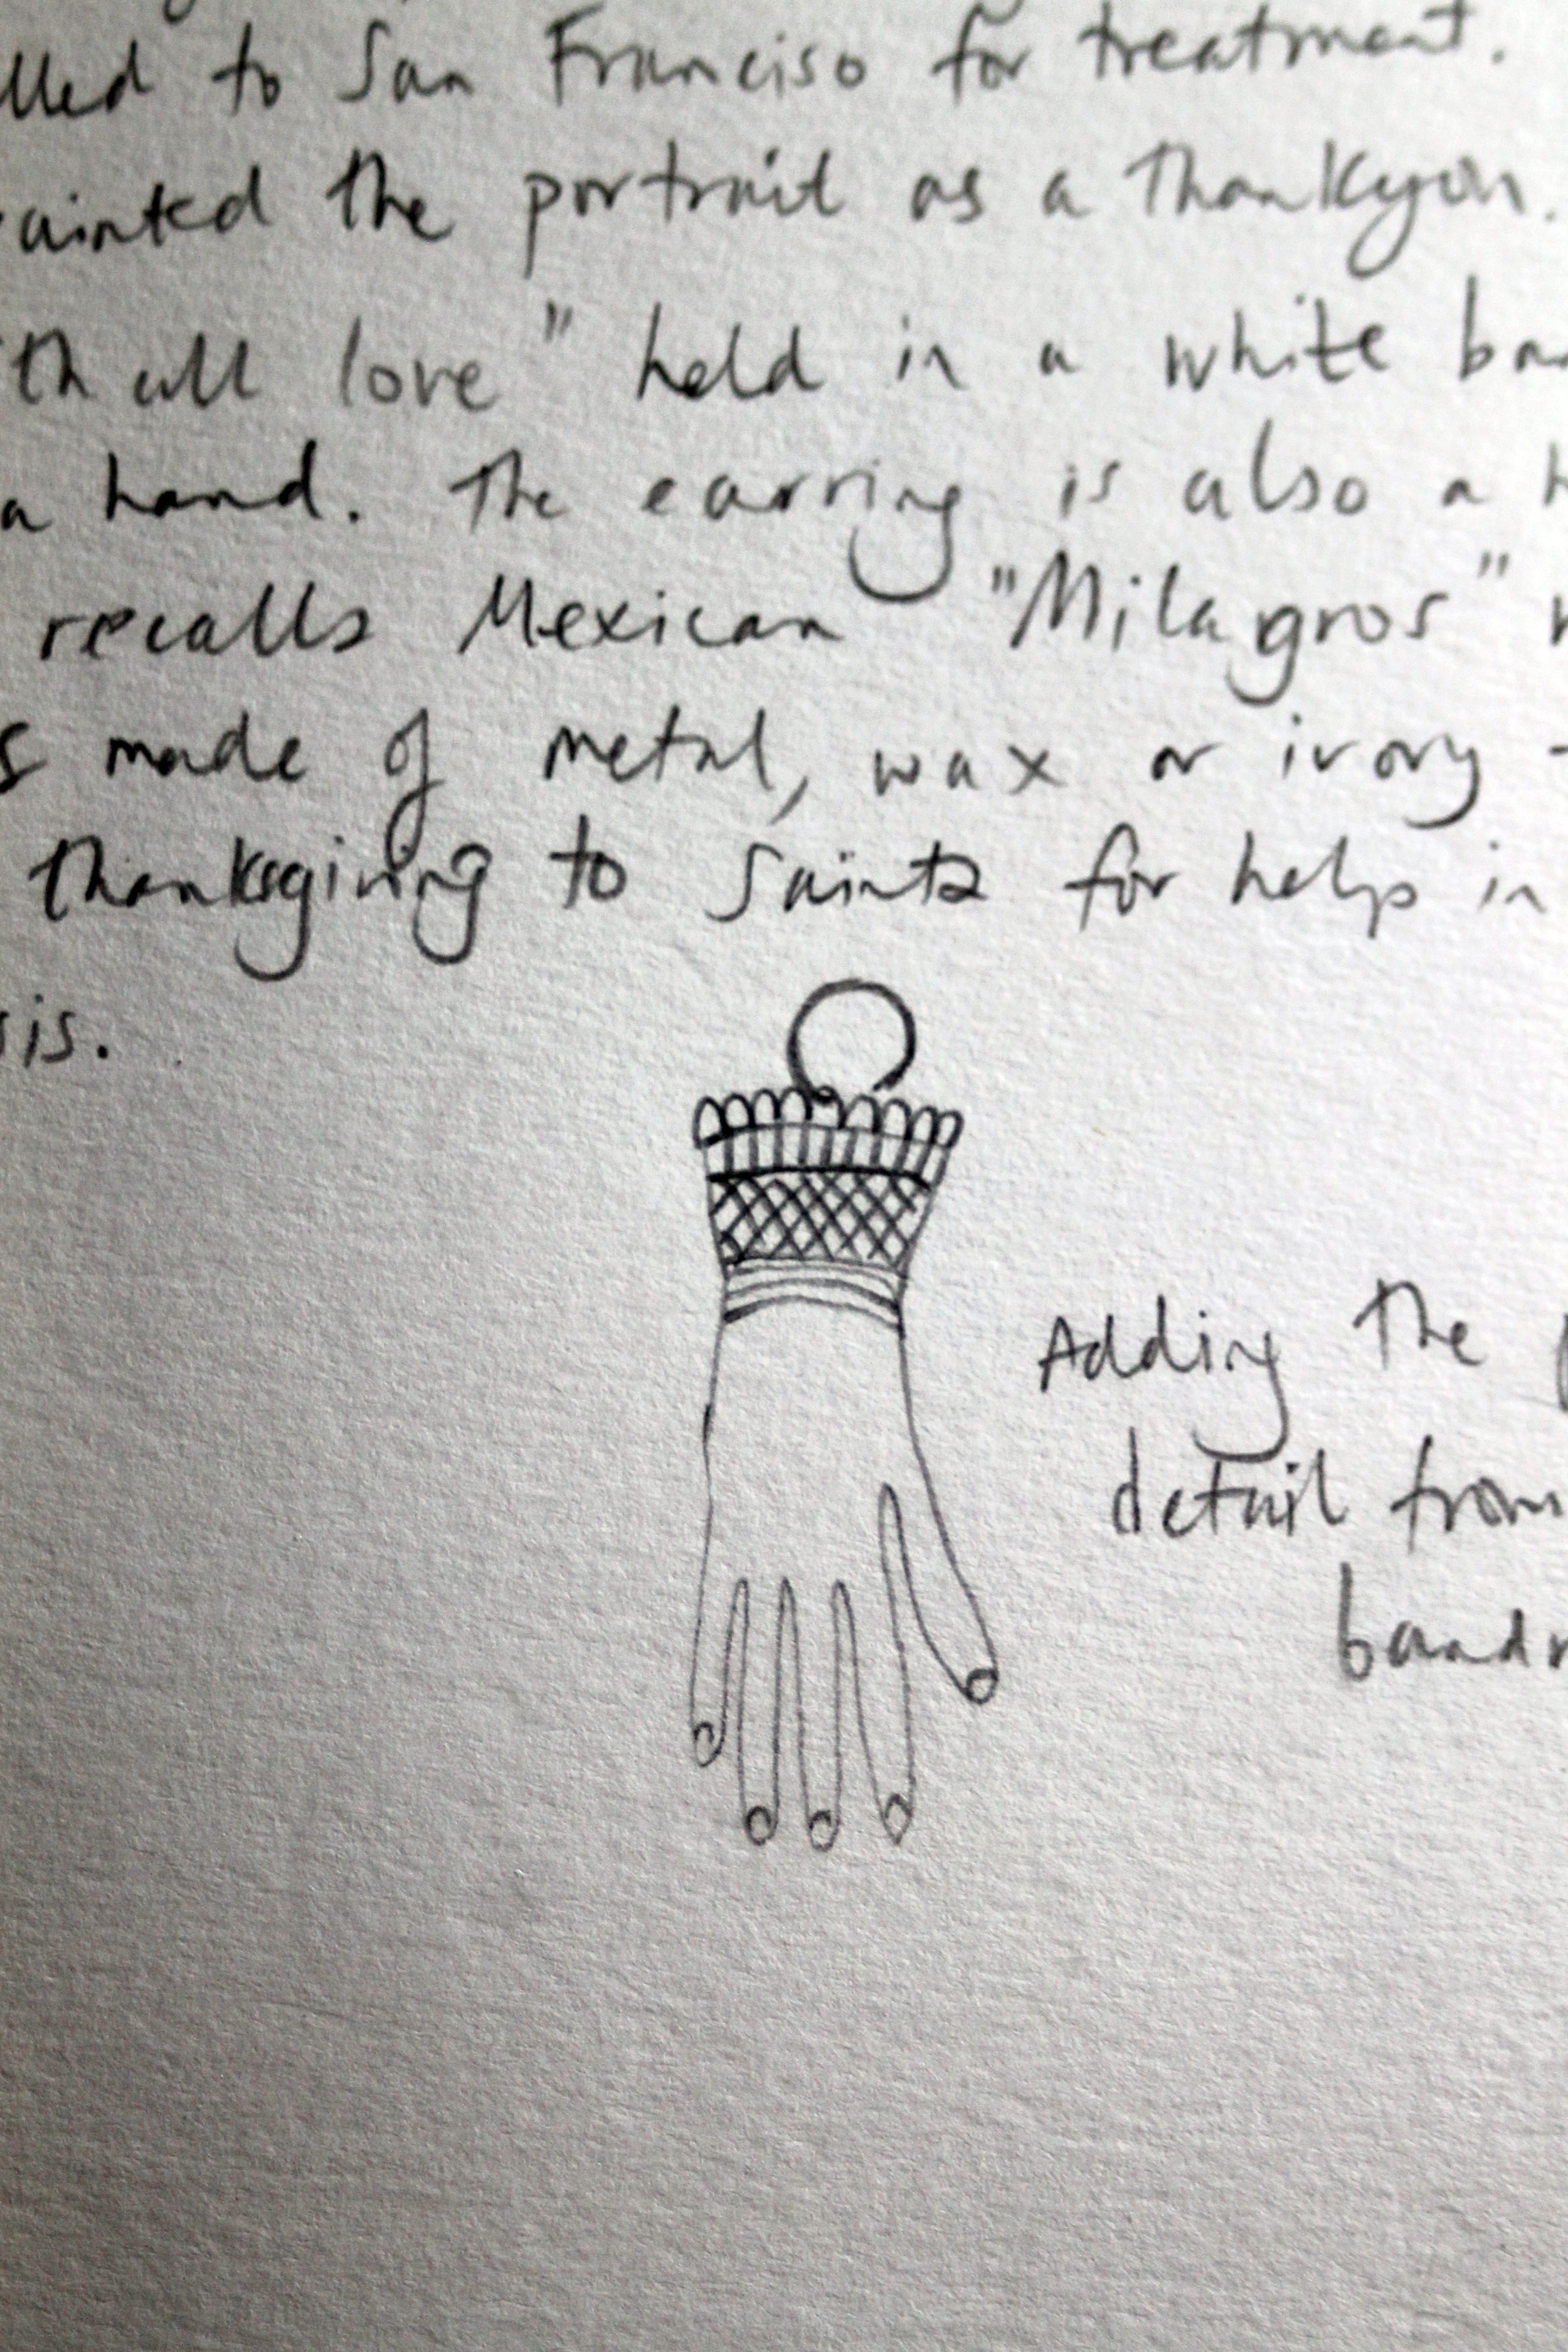 lled to San Franciso for treatment.
ainted the portrait as a thankyou.
th all love" held in a white ba
a hand. The earring is also a h
recalls Mexican "Milagros"
s made of metal, wax or ivory -
thanksgiving to Saints for help in
sis.
Adding the
detail from
band